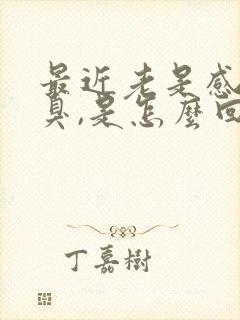 最近老是感
臭,是怎麼回
丁嘉樹